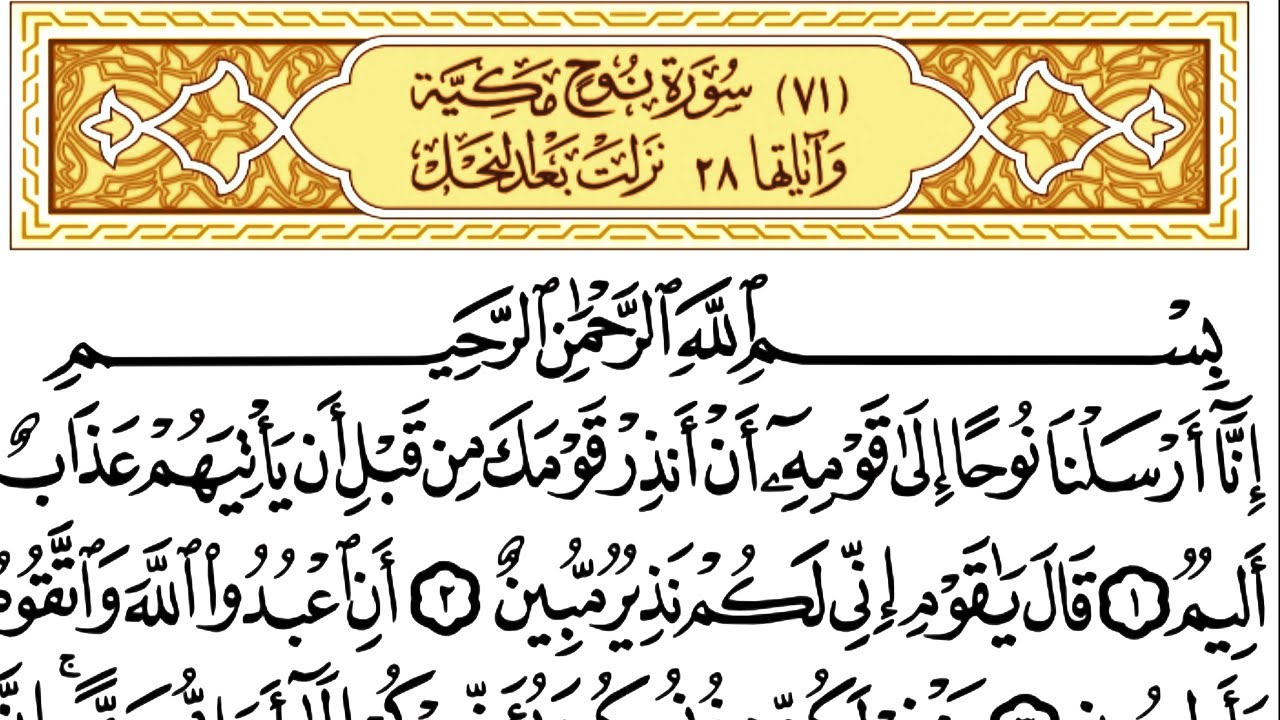 (٧١) سُورَةُ نُوحٍ مَكِّيَّة
وَآيَاتُهَا ٢٨ نَزَلَتْ بَعْدَ النَّحْلِ
بِسْمِ ٱللَّهِ ٱلرَّحْمَٰنِ ٱلرَّحِيمِ
إِنَّآ أَرْسَلْنَا نُوحًا إِلَىٰ قَوْمِهِۦٓ أَنْ أَنذِرْ قَوْمَكَ مِن قَبْلِ أَن يَأْتِيَهُمْ عَذَابٌ
أَلِيمٌ ١ قَالَ يَٰقَوْمِ إِنِّى لَكُمْ نَذِيرٌ مُّبِينٌ ٢ أَنِ ٱعْبُدُوا۟ ٱللَّهَ وَٱتَّقُوهُ